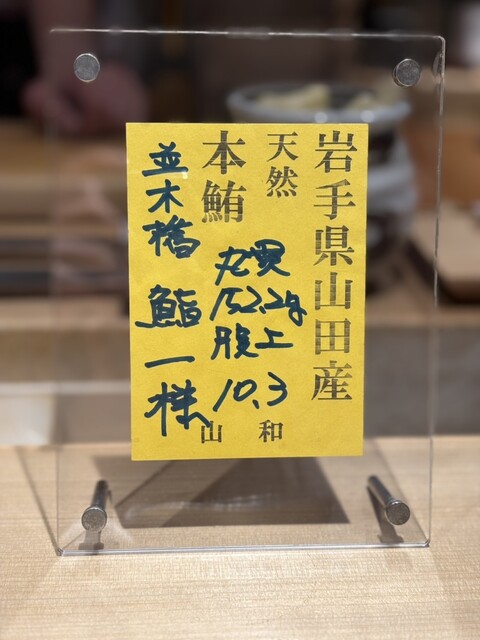 岩手県山田産
天然
本鮪
定置
152.2kg
腹上
10.3
山和
並木橋
鮨一様